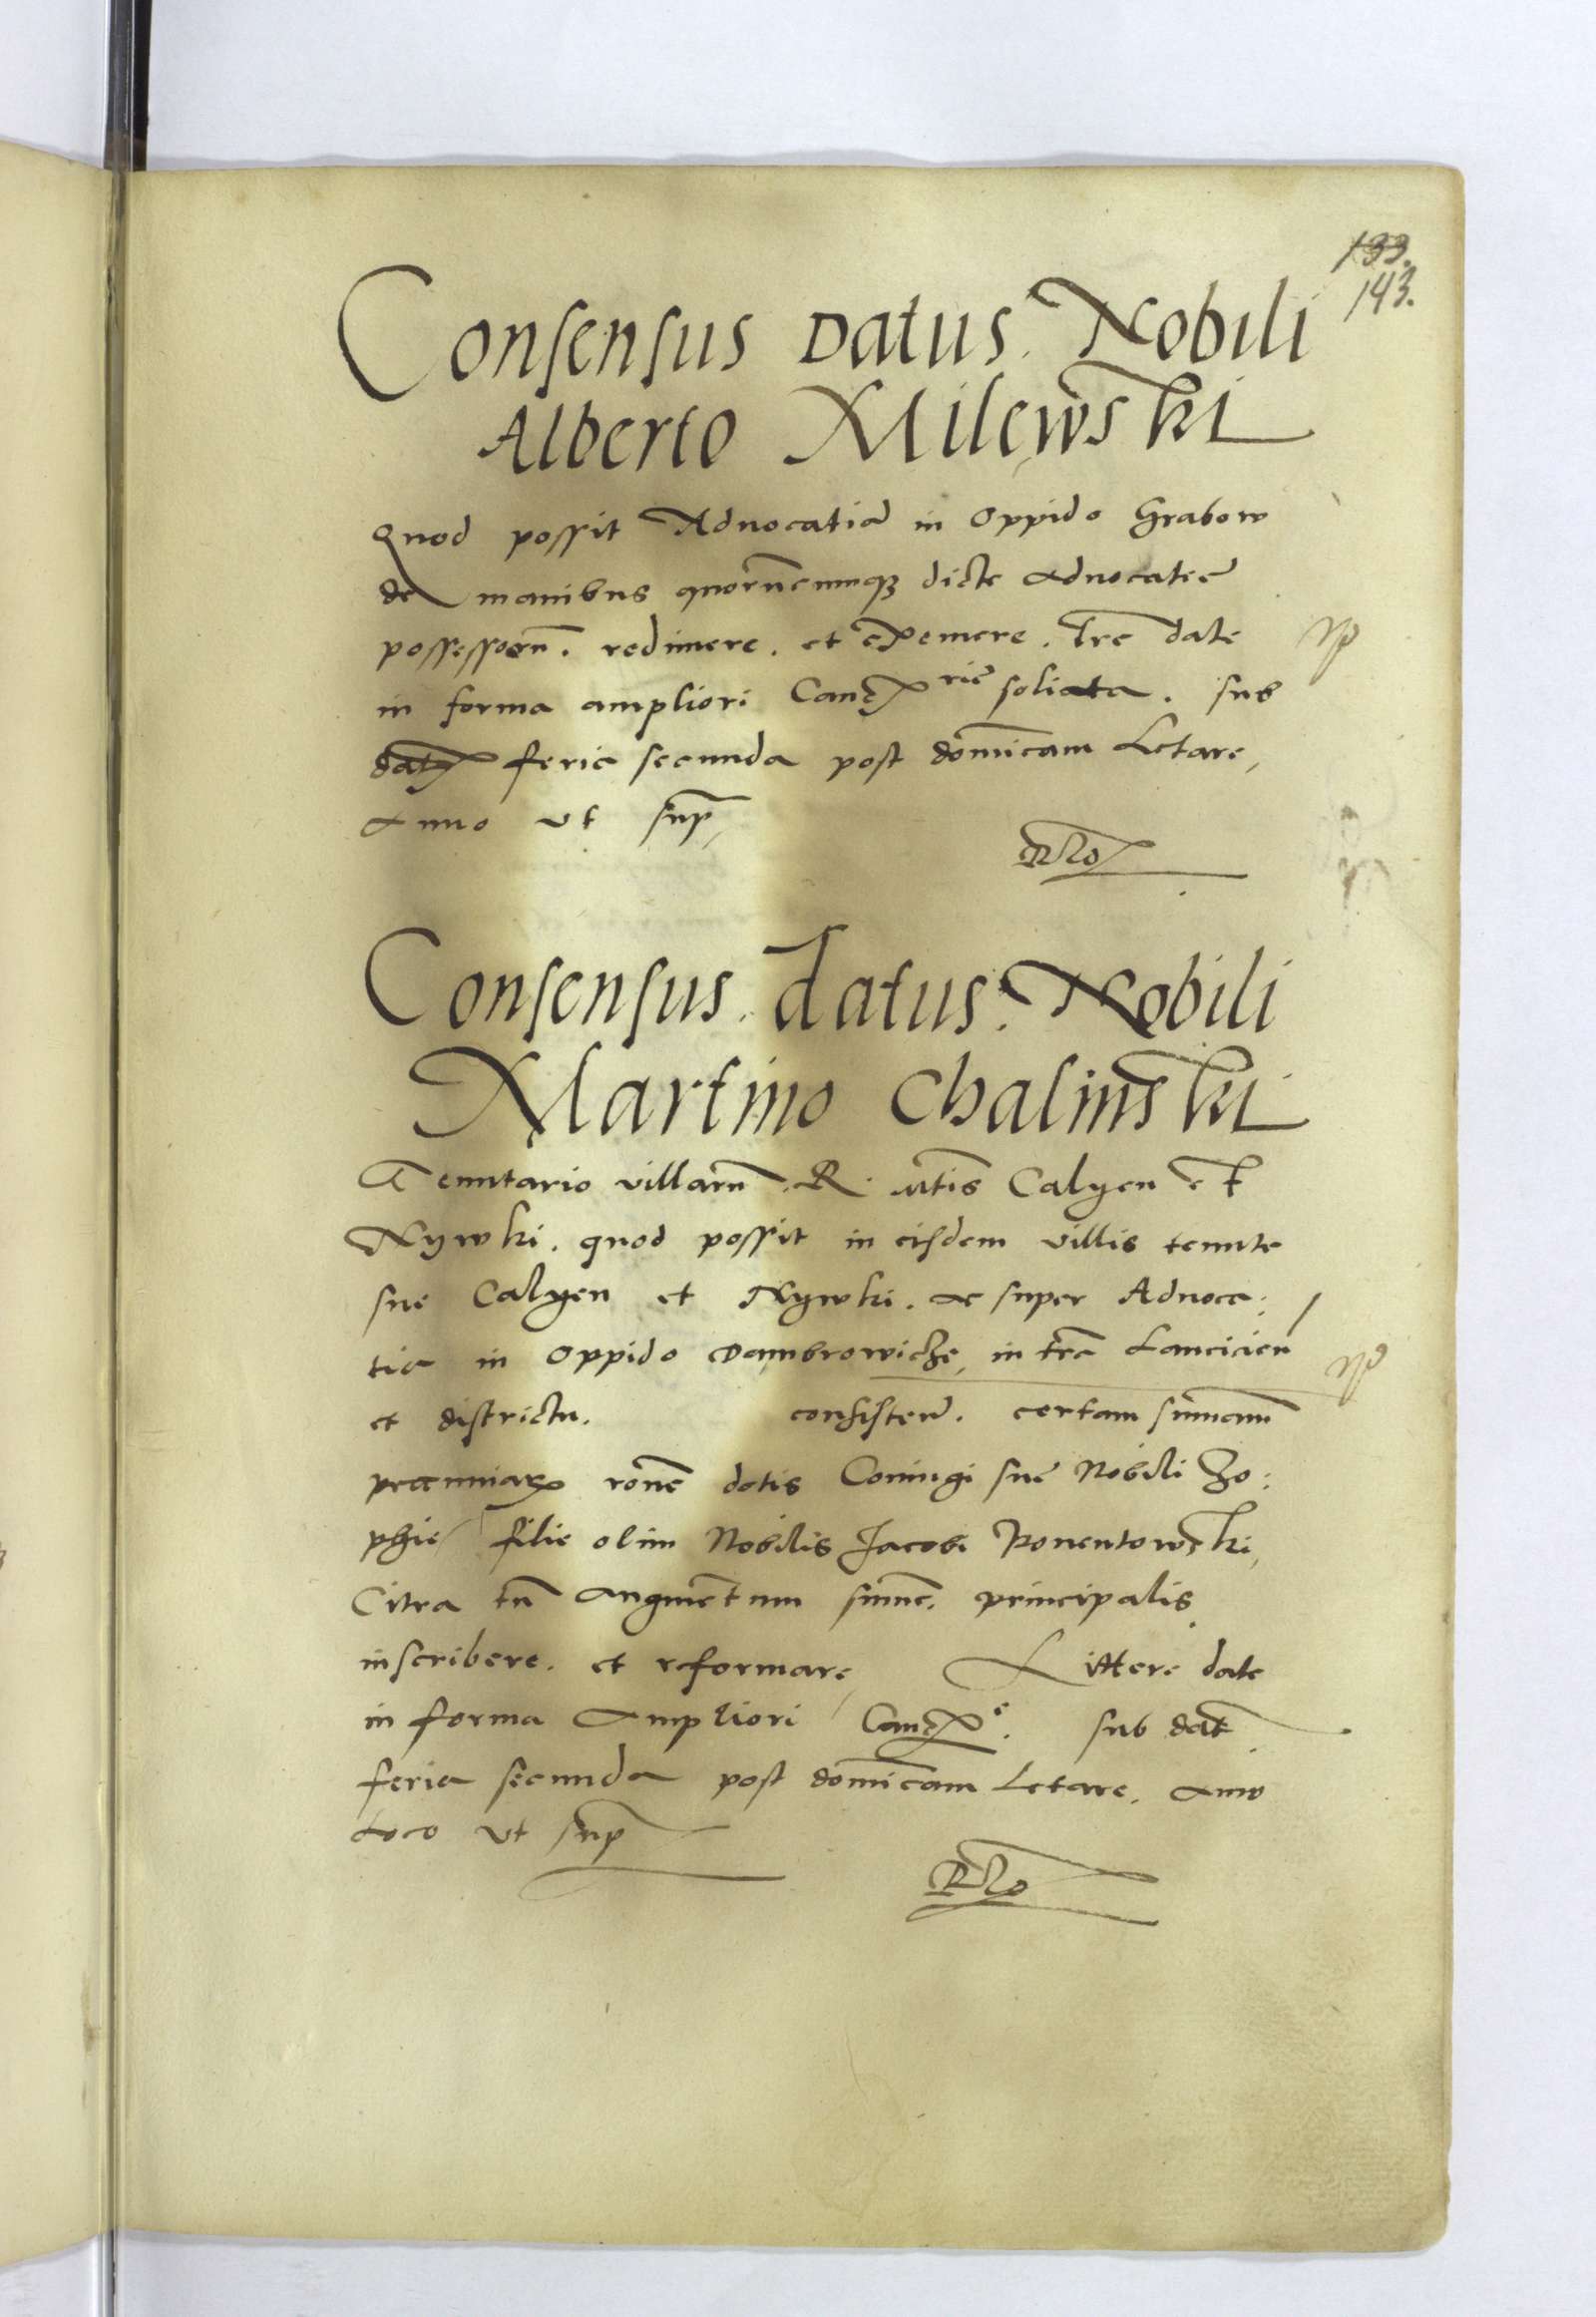 133.
143.
Consensus Datus. Nobili
Alberto Milewski
Quod possit Aduocatiā in Oppido Grabow
de manibus quorūcumqꝫ dicte aduocatie
possessorū. redimere. et eximere. Lrē date
in forma ampliori Canꝝ rie solicita. sub
datꝝ feria secunda post domīcam Letare,
Anno vt sup̄
Consensus. datus. Nobili
Martino Chalinski
Tenutario villarū. R. Mtīs Calyen et
Nywki. quod possit in eisdem villis tenute
sue Calyen et Nywki. ac super Aduoca:
tia in Oppido Dambrowicze, in tr̄a Lancicien̄
et districtu. consisten̄. certam sum̄am
pecuniaꝝ rōne dotis Coniugi sue Nobili Zo:
phie filie olim Nobilis Jacobi Ponentowski,
Citra tn̄ augmētum sum̄e. principalis
inscribere. et reformare, Littere date
in forma Ampliori Canꝝe. sub dat̄
feria secunda post domīcam Letare. Anno
Loco vt sup̄